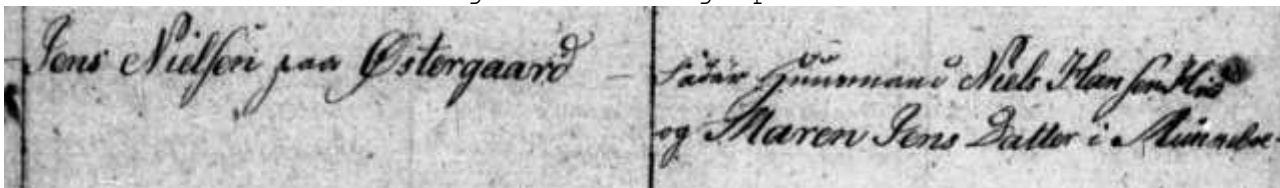 Jens Nielsen paa Østergaard
Fader Huusmand Niels Hansen
og Maren Jens Datter i